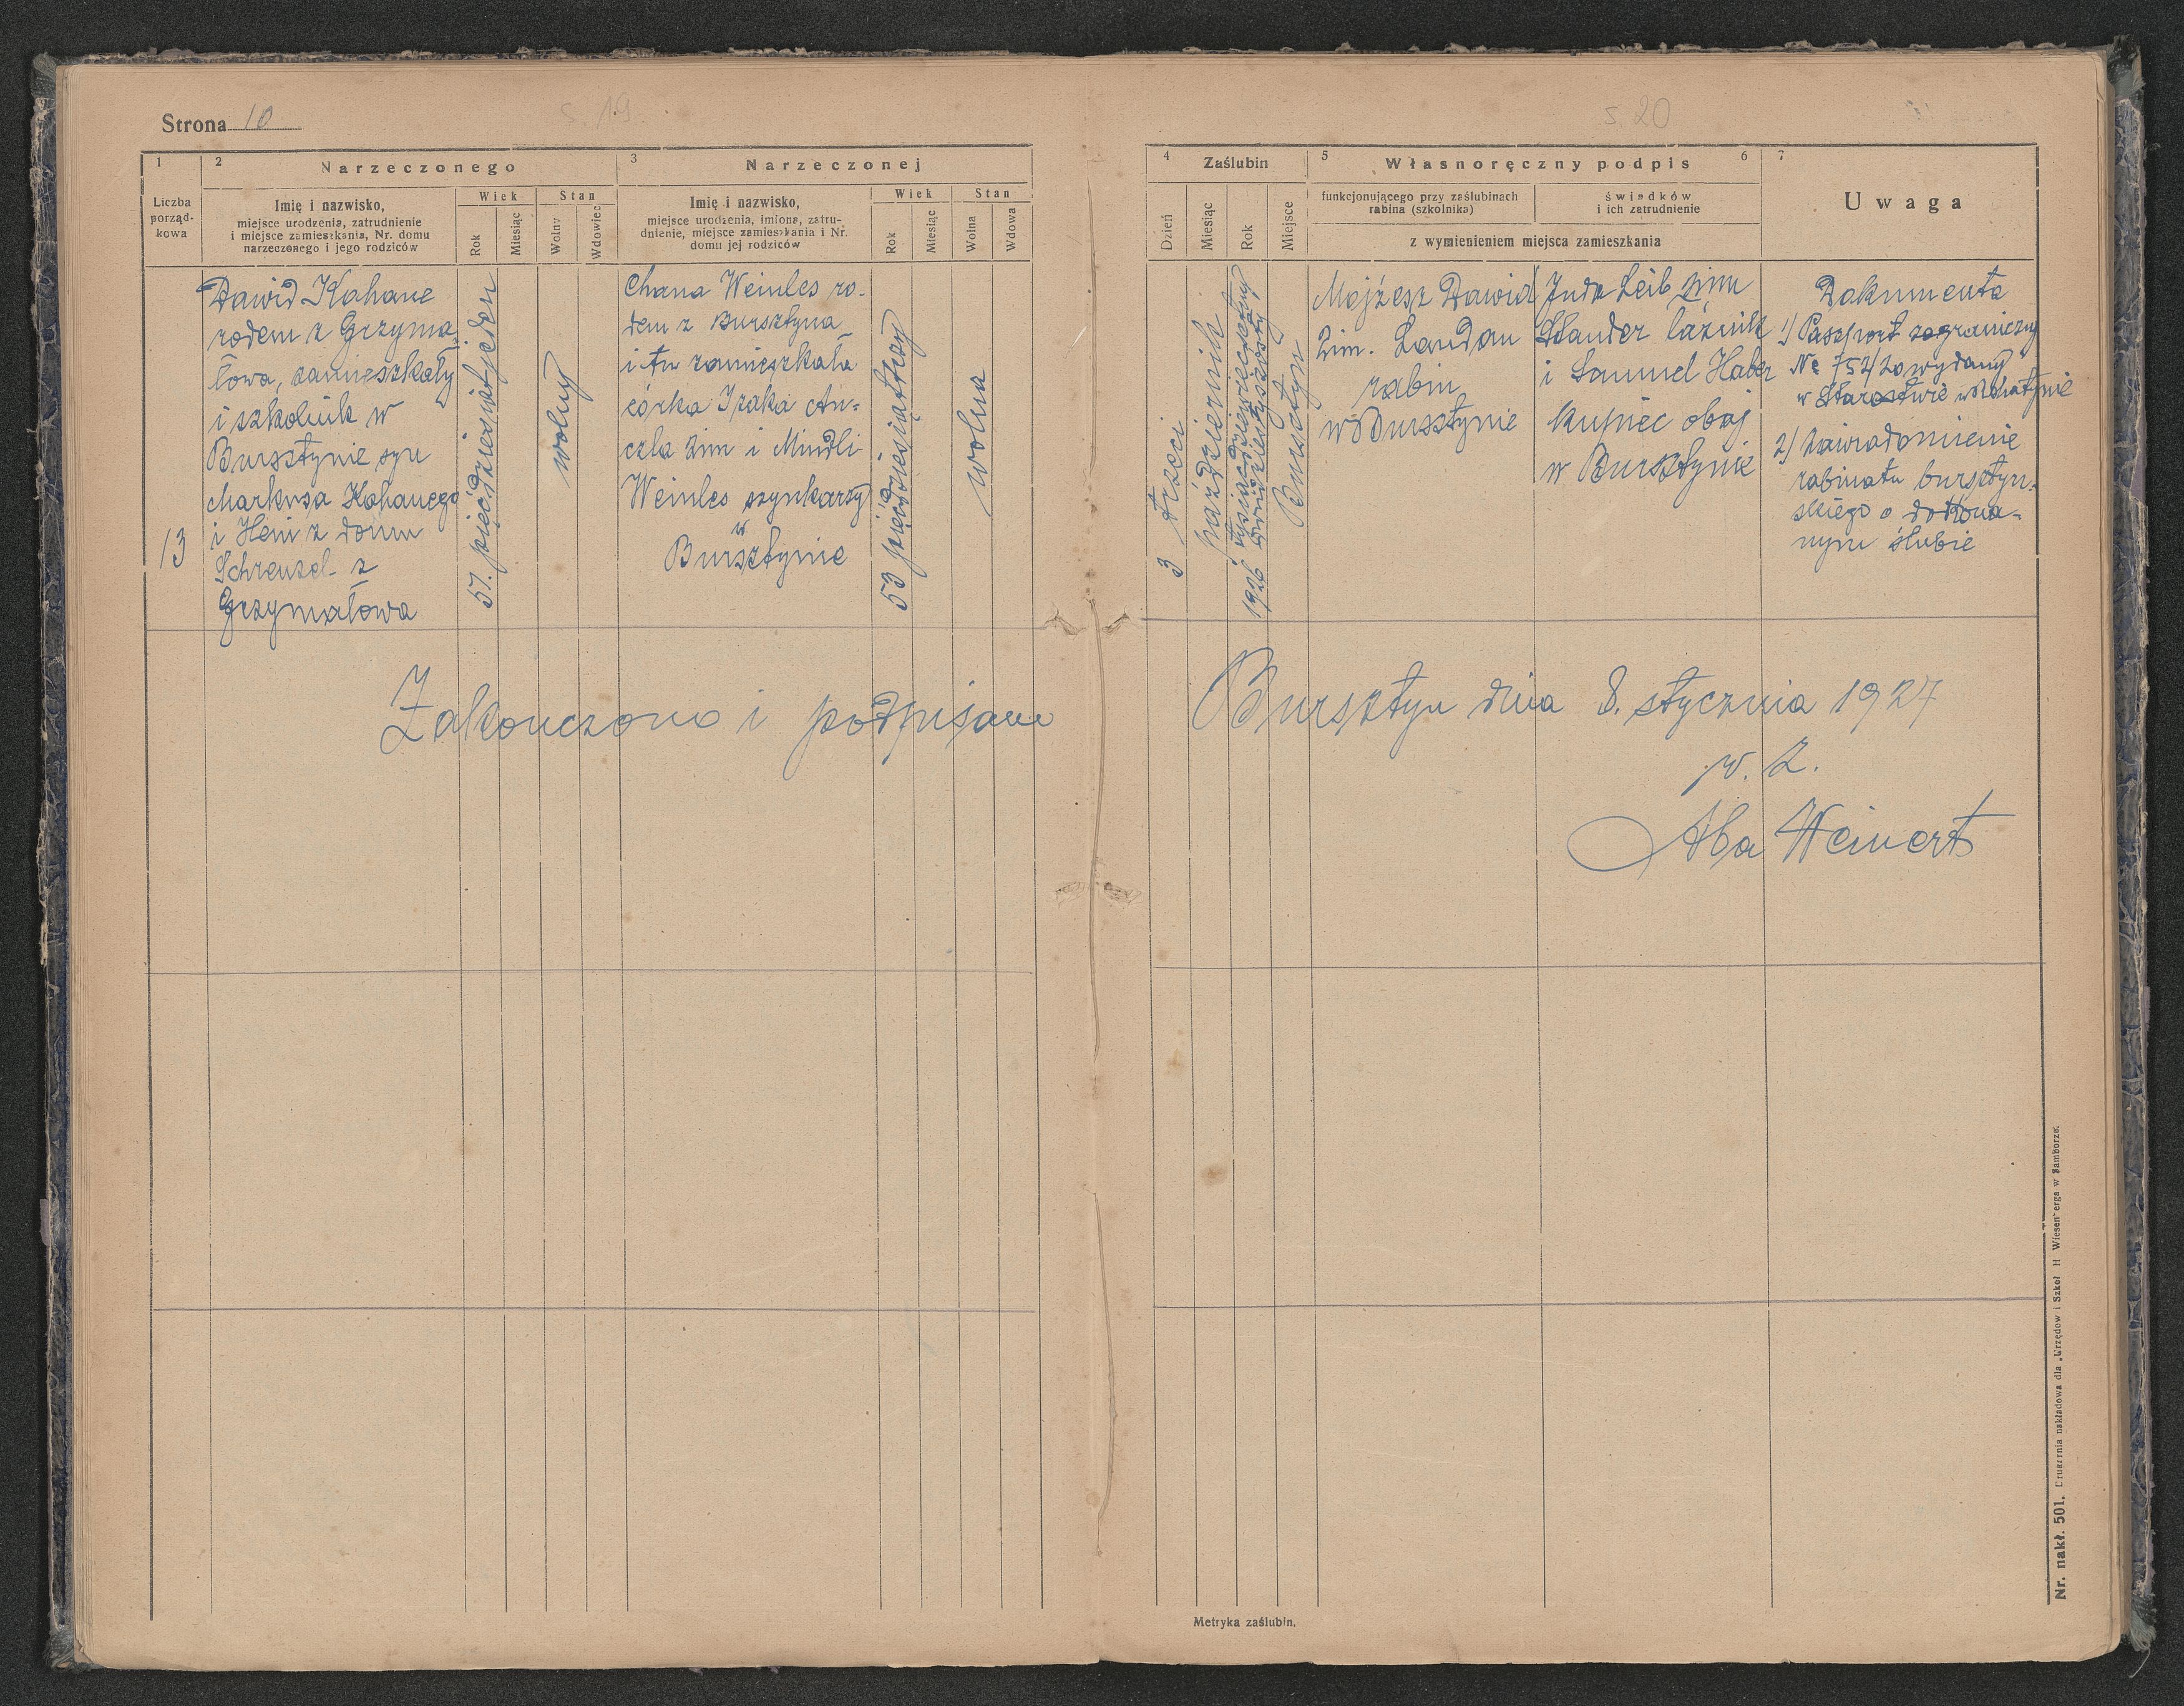 Strona 10
s. 19
1
Liczba
porząd-
kowa
2
Narzeczonego
Imię i nazwisko,
miejsce urodzenia, zatrudnienie
i miejsce zamieszkania, Nr. domu
narzeczonego i jego rodziców
Wiek
Rok
Miesiąc
Stan
Wolny
Wdowiec
3
Narzeczonej
Imię i nazwisko,
miejsce urodzenia, imiona, zatru-
dnienie, miejsce zamieszkania i Nr.
domu jej rodziców
Wiek
Rok
Miesiąc
Stan
Wolna
Wdowa
13
Dawid Kahane
rodem z Grzyma
łowa, zamieszkały
i szkolnik w
Bursztynie syn
Markusa Kahanego
i Heni z domu
Schrenzel z
Grzymałowa
51. pięćdziesiątjeden
wolny
Chana Weinles ro-
dem z Bursztyna
i tu zamieszkała
córka Izaka An-
czla zim i Mindli
Weinles szynkarzy
w
Bursztynie
53 pięćdziesiąttrzy
wolna
Zakończono i podpisano
s. 20
4
Zaślubin
Dzień
Miesiąc
Rok
Miejsce
5
Własnoręczny podpis
6
funkcjonującego przy zaślubinach
rabina (szkolnika)
świadków
i ich zatrudnienie
z wymienieniem miejsca zamieszkania
7
Uwaga
3 trzeci
październik
1926 tysiącdziewięćsetny
dwudziestyszósty
Bursztyn
Mojżesz Dawid
Zim. Landau
rabin
w Bursztynie
Juda Leib zim
Stander łaźnik
i Samuel Haber
kupiec obaj
w Bursztynie
Dokumenta
1) Paszport zagraniczny
No 752/20 wydany
w Starostwie w Rohatynie
2) Zawiadomienie
rabinatu bursztyn-
skiego o dokona-
nym ślubie
Bursztyn dnia 8. stycznia 1927
w. z.
Aba Weinert
Metryka zaślubin.
Nr. nakł. 501. Drukarnia nakładowa dla „Urzędów i Szkół H Wiesenberga w Samborze.